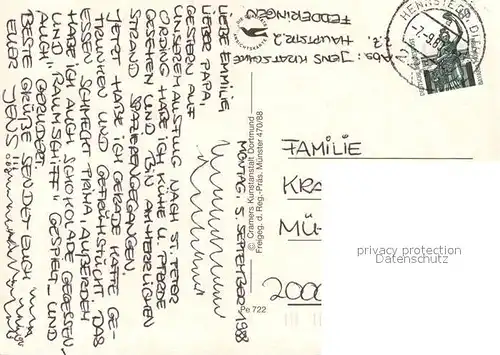 MONTAG, 5. SEPTEMBER 1988
LIEBE EMMILIE!
LIEBER PAPA,
GESTERN AUF
UNSEREM AUSFLUG NACH ST. PETER
ORDING HABE ICH KÜHE U. PFERDE
GESEHEN UND BIN AM HERRLICHEN
STRAND SPAZIERENGEGANGEN.
JETZT HABE ICH GERADE KAFFE GE-
TRUNKEN UND GEFRÜHSTÜCKT. DAS
ESSEN SCHMECKT PRIMA. AUßERDEM
HABE ICH AUCH SCHOKOLADE GEGESSEN
UND "RAUMSCHIFF" GESPIELT UND
AUCH GERUDERT.
BESTE GRÜßE SENDET EUCH
EUER JENS
DIE
ANSICHTSKARTE
Abs: JENS KRATSCHKE
HAUPTSTR. 2
FEDDERINGEN
© Cramers Kunstanstalt Dortmund
Freigeg. d. Reg.-Präs. Münster 470/88
Pe 722
HENNSTEDT
-7.-9.88
FAMILIE
KRA
MÜ-
2000
privacy protection
Datenschutz